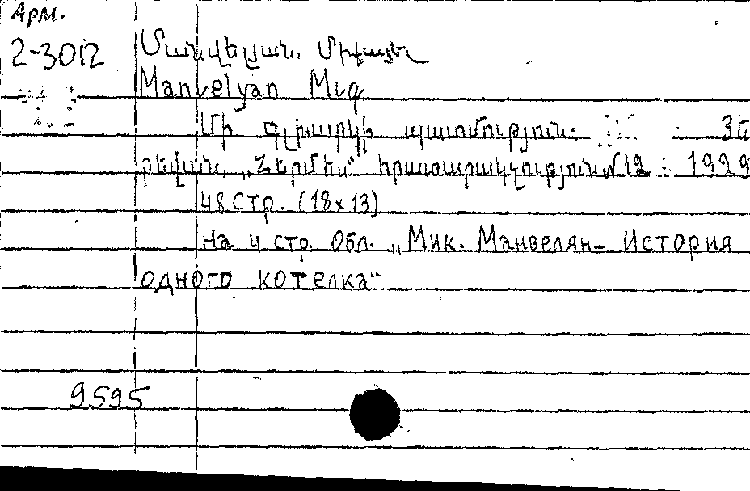 Арм.
2-3012
Մանվելյան, Միքայել
Manvelyan Miq
Մի գլխարկի պատմություն.
րևան, „Հերմես“ հրատարակչություն №12 1929
48 стр. (18×13)
На 4 стр. Обл. „Мик. Манвелян- История
одного котелка“
9595